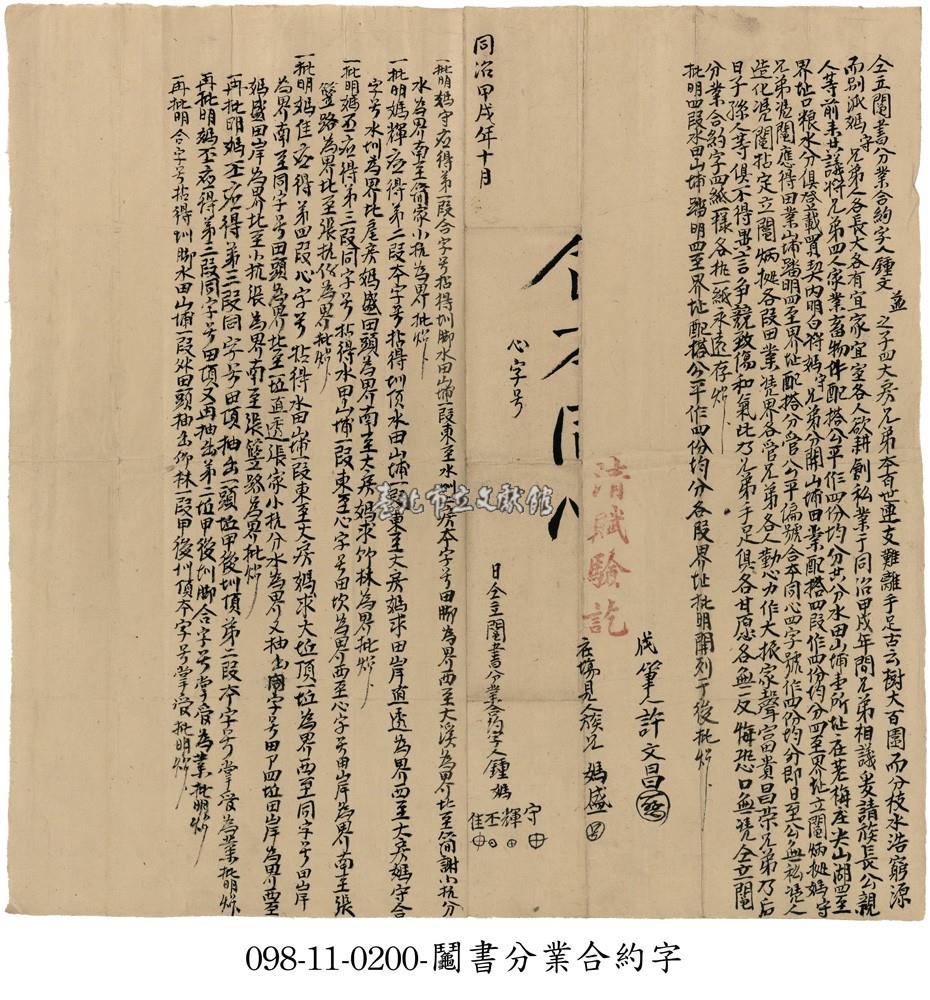 仝立鬮書分業合約字人鍾文益之子四大房兄弟本百世連支難離手足古云樹大百園而分枝水浩窮源
而別派媽守兄弟人各長大各有宜家宜室各人欲耕創私業于同治甲戌年間兄弟相議爰請族長公親
人等前來共議將兄弟四人家業畜物件配搭公平作四份均分共分水田山埔圭所址在老梅庄尖山湖四至
界址口粮水分俱登載買契內明白將媽守兄弟分開山埔田業配搭四段作四份均分四至界址立鬮炳拠媽守
兄弟憑鬮應得田業山埔踏明四至界址配搭分管公平偏號合本同心四字號作四份均分即日至公無私憑人
造化憑鬮拈定立鬮炳拠各段田業憑界各管兄弟各人勤心力作大振家聲富貴昌榮兄弟乃后
日子孫人等俱不得異言爭競致傷和氣此乃兄弟手足俱各甘愿各無反悔恐口無憑仝立鬮
分業合約字四紙樣各执一紙永遠存炤
批明四段水田山埔踏明四至界址配搭公平作四份均分各段界址批明開列于後批炤
代筆人許文昌
在場見人族兄媽盛
清賦驗訖
合本同心
心字号
同治甲戌年十月 日仝立鬮書分業合約字人鍾媽
守
輝
丕
佳
一批明媽守应得第一段合字号拈得圳脚水田山埔一段東至水圳 本字号田脚為界西至大溪為界北至簡謝小坑分
水為界南至簡家小坑為界批炤
一批明媽輝应得第二段本字号拈得圳頂水田山埔一段東至大房媽求田岸直透為界西至大房媽守合
字号水圳為界北 房媽盛田頭為界南至大房媽求竹林為界批炤
一批明媽丕应得第三段同字号拈得水田山埔一段東至心字号田坎為界西至心字号田岸為界南至張
簦路為界北至張 為界批炤
一批明媽佳应得第四段心字号拈得水田山埔一段東至大房媽求大坵頂一坵為界西至同字号田岸
為界南至同字号田頭為界北至坵直透張家小坑分水為界又抽出 字号田 四坵田岸為界西至
媽盛田岸為界北至小坑張為界南至張簦路為界批炤
一再批明媽丕应得第三段同字号田頂抽出一頭坵甲後圳頂第二段本字号掌管為業批明炤
再批明媽丕应得第三段同字号田頂又再抽出第二坵甲後圳脚合字号掌管為業批明炤
再批明合字号拈得圳脚水田山埔一段 田頭抽出 林一段甲後圳頂本字号掌管批明炤
臺北市立文獻館
098-11-0200-鬮書分業合約字